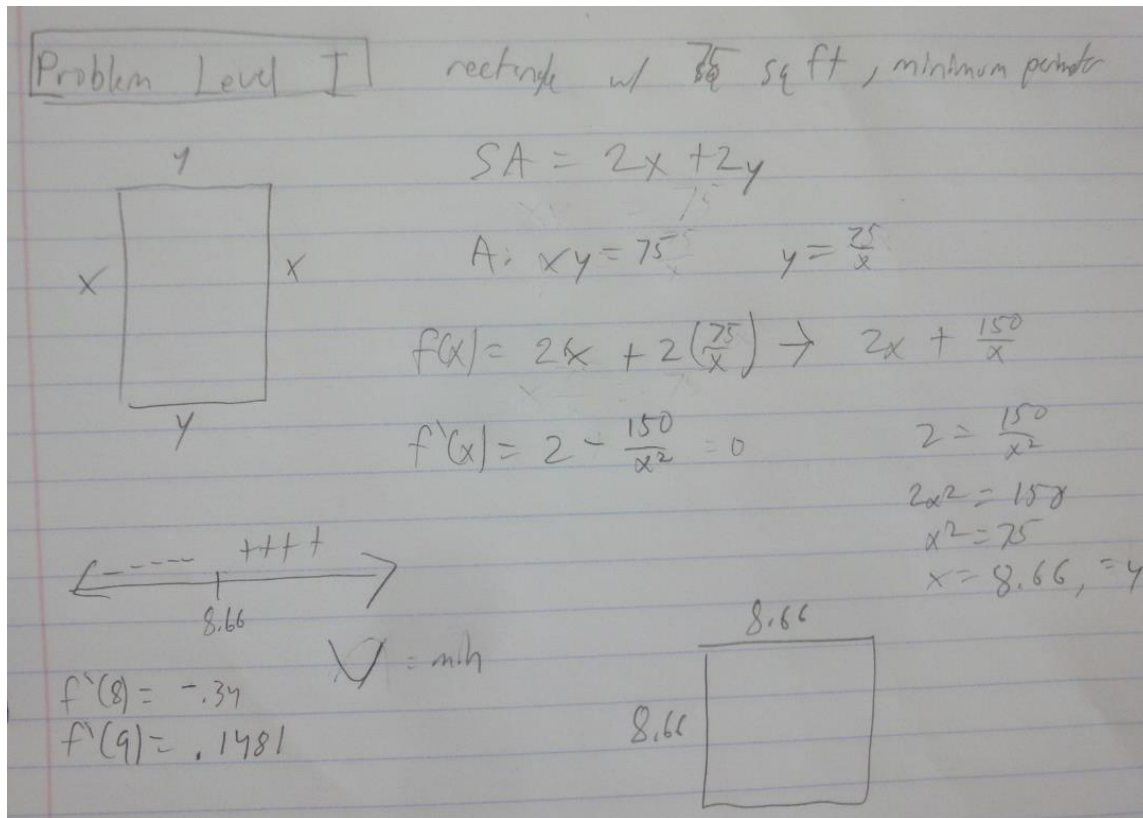 Problem Level I
rectangle w/ 75 sq ft, minimum perimeter
y
x
x
y
SA = 2x + 2y
A: xy = 75 y = 75/x
f(x) = 2x + 2(75/x) → 2x + 150/x
f'(x) = 2 - 150/x² = 0
2 = 150/x²
2x² = 150
x² = 75
x = 8.66, = y
----- ++++
8.66
f'(8) = -.34
f'(9) = .1481
= min
8.66
8.66